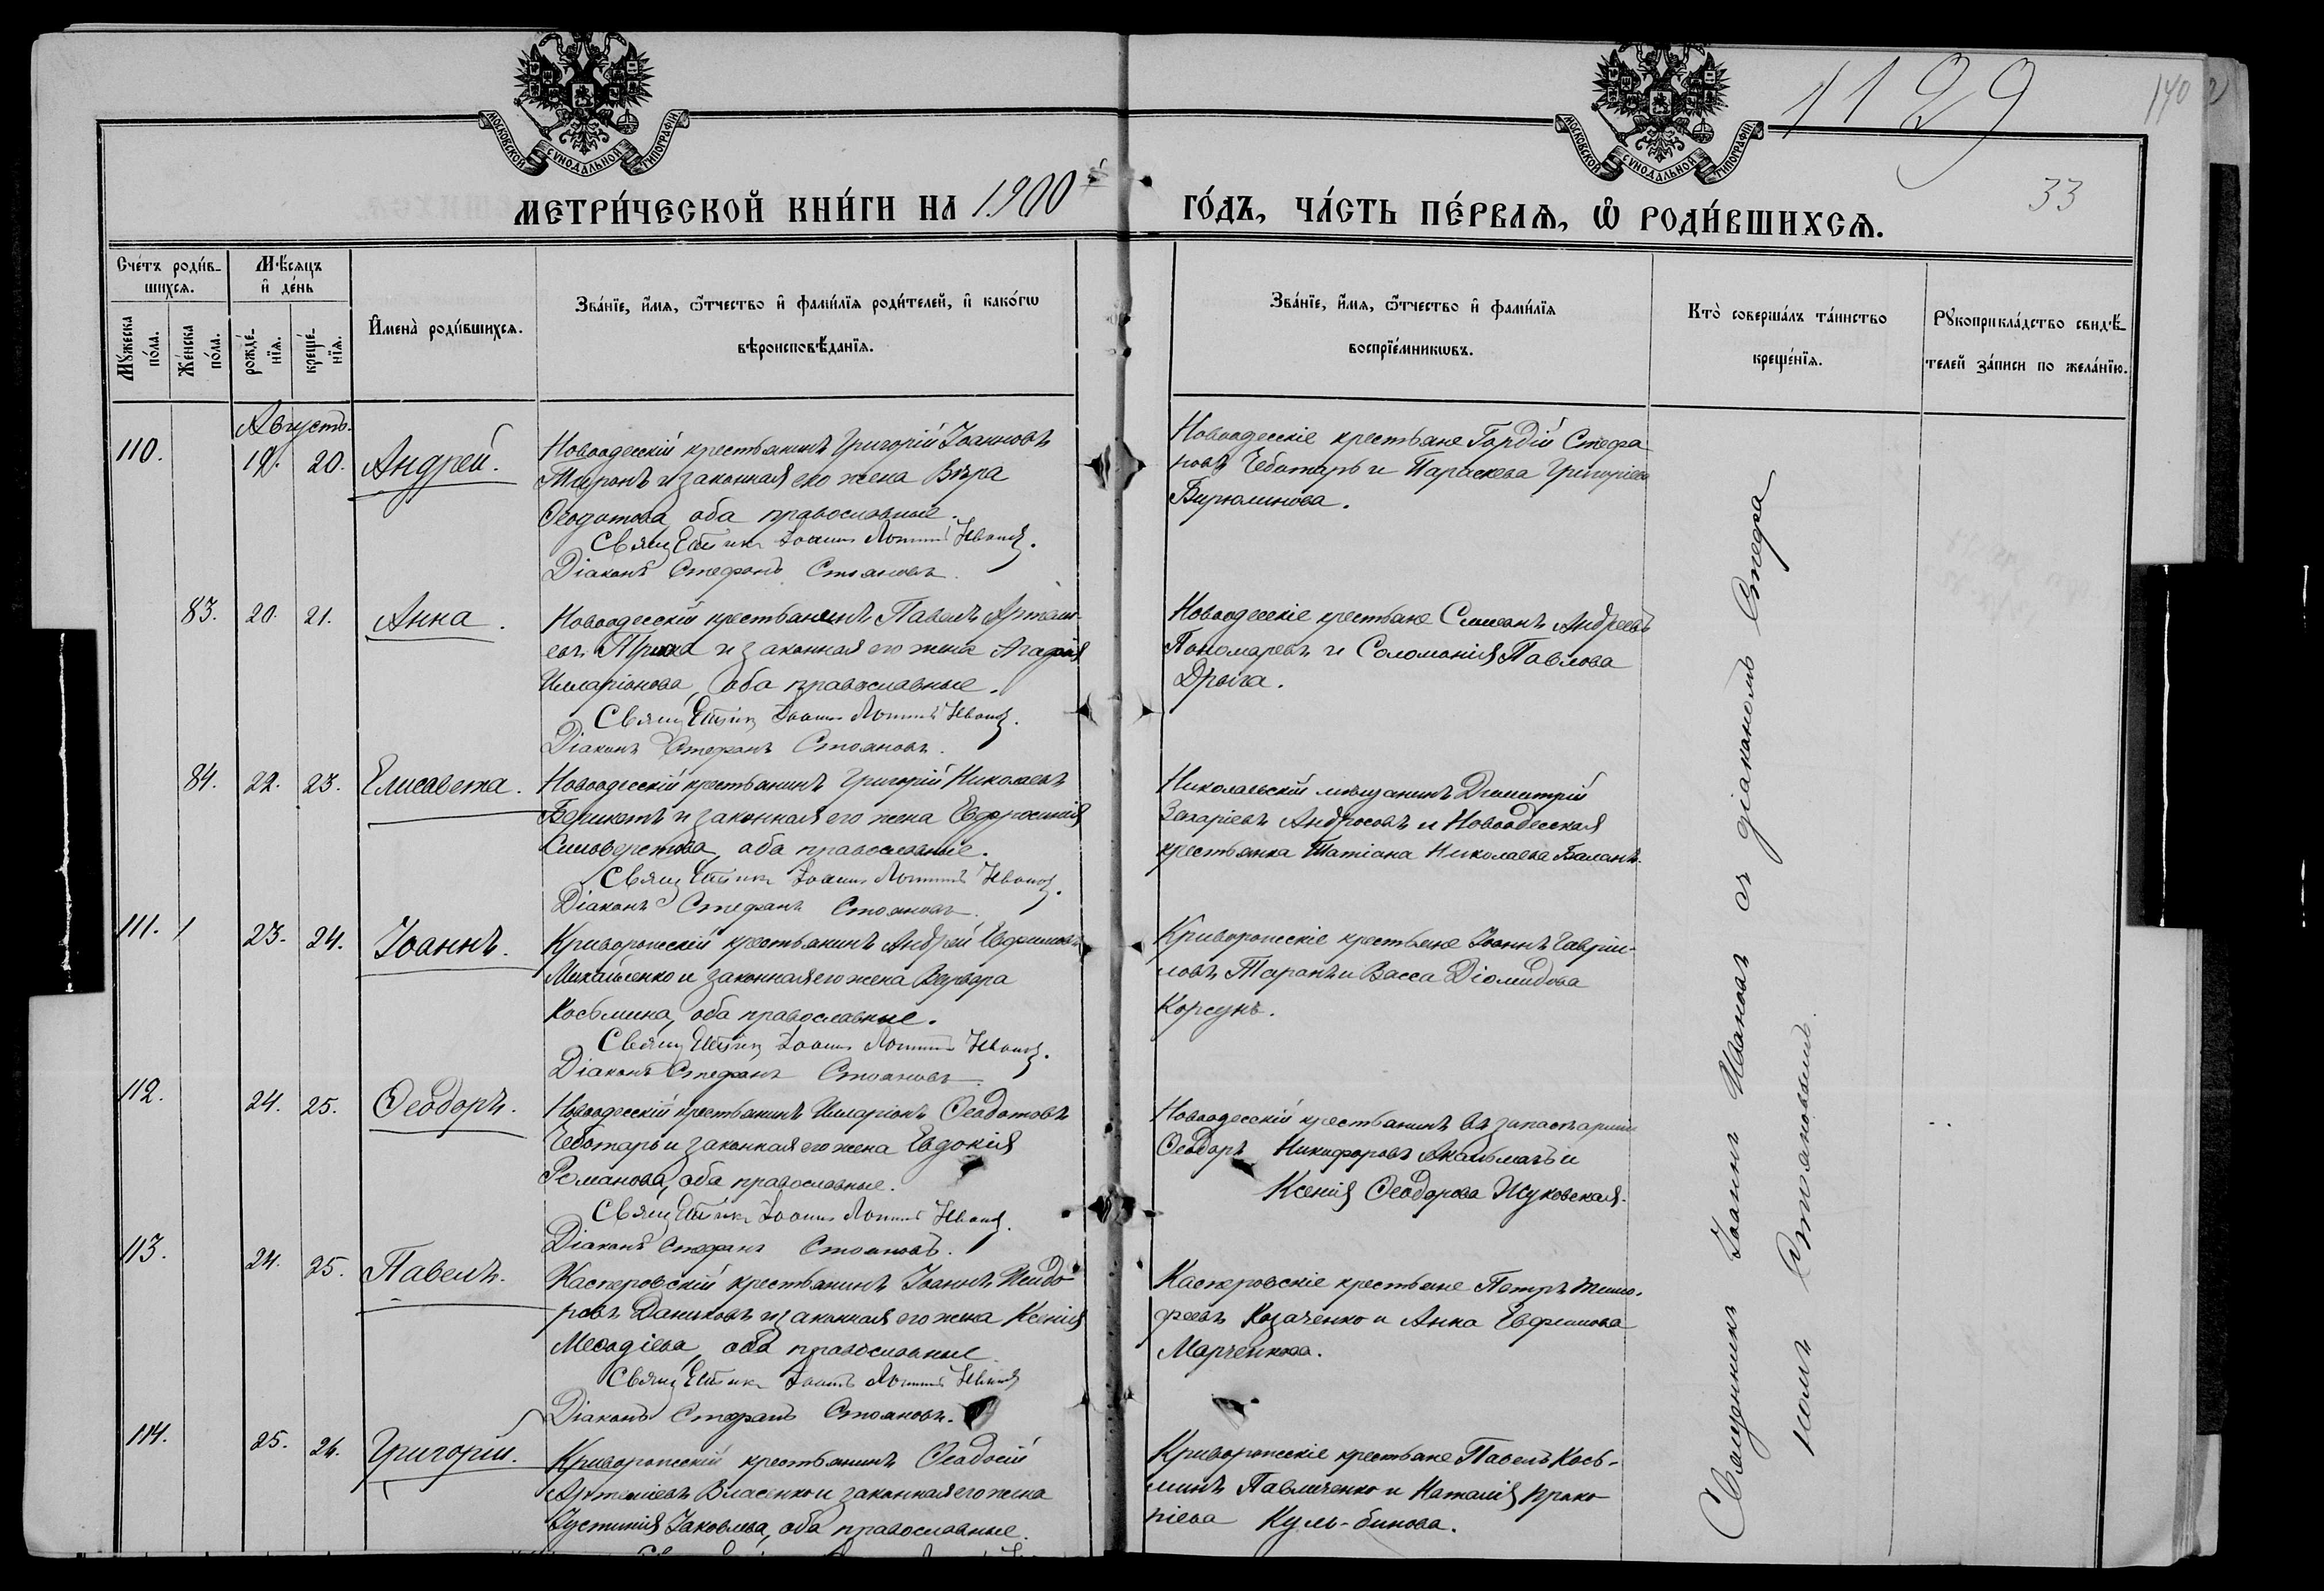 МОСКОВСКОЙ СУНОДАЛЬНОЙ ТИПОГРАФІИ
МОСКОВСКОЙ СУНОДАЛЬНОЙ ТИПОГРАФІИ
1129
140
33
МЕТРИ́ЧЕСКОЙ КНИ́ГИ НА 1900 ГО́ДЪ, ЧА́СТЬ ПЕ́РВАѦ, Ѡ҆ РОДИ́ВШИХСѦ.
Сче́тъ роди́в-
шихся.
Му́жеска по́ла.
Же́нска по́ла.
Мѣ́сяцъ
и҆ де́нь
рожде́-
нїя.
креще́-
нїя.
И҆мена̀ роди́вшихся.
Зва́нїе, и҆́мя, ѻ҆́тчество и҆ фами́лїя роди́телей, и҆ како́гѡ
вѣроисповѣ́данїя.
Зва́нїе, и҆́мя, ѻ҆́тчество и҆ фами́лїя
воспрїе́мникѡвъ.
Кто̀ соверша́лъ та́инство
креще́нїя.
Рукоприкла́дство свидѣ́-
телей за́писи по жела́нїю.
Августъ.
110. 19. 20. Андрей.
Новоодесскій крестьянинъ Григорій Іоанновъ
Тиронъ и законная его жена Вѣра
Ѳеодотова, оба православные.
Священникъ Іоаннъ Ивановъ.
Діаконъ Стефанъ Стояновъ.
Новоодесскіе крестьане Гордій Стефа
новъ Чеботарь и Параскева Григоріева
Бирюлинова.
83. 20. 21. Анна.
Новоодесскій крестьанинъ Павелъ Артемі-
евъ и законная его жена Агафія
Илларіонова, оба православные.
Священникъ Іоаннъ Ивановъ.
Діаконъ Стефанъ Стояновъ.
Новоодесскіе крестьане Симеонъ Андреевъ
Пономаревъ и Соломонія Павлова
Дрыга.
84. 22. 23. Елисавета.
Новоодесскій крестьанинъ Григорій Николаевъ
и законная его жена Евфросинія
Сильверстова, оба православные.
Священникъ Іоаннъ Ивановъ.
Діаконъ Стефанъ Стояновъ.
Николаевскій мѣщанинъ Димитрій
Захаріевъ Андросовъ и Новоодесская
крестьянка Татіана Николаева Баланъ.
111. 1 23. 24. Іоаннъ.
Криворожскій крестьянинъ Андрей Евфимовъ
Михайленко и законная его жена Варвара
Косьмина, оба православные.
Священникъ Іоаннъ Ивановъ.
Діаконъ Стефанъ Стояновъ.
Криворожскіе крестьяне Іоаннъ Гаврии-
ловъ Таранъ и Васса Діомидова
Корсунь.
112. 24. 25. Ѳеодоръ.
Новоодесскій крестьянинъ Илларіонъ Ѳеодотовъ
Чеботарь и законная его жена Евдокія
Романова, оба православные.
Священникъ Іоаннъ Ивановъ.
Діаконъ Стефанъ Стояновъ.
Новоодесскій крестьянинъ въ запасѣ арміи
Ѳеодоръ Никифоровъ и
Ксенія Ѳеодорова Жуковская.
113. 24. 25. Павелъ.
Касперовскій крестьанинъ Іоаннъ Исидо
ровъ Даниковъ и законная его жена Ксенія
Меѳодіева, оба православные.
Священникъ Іоаннъ Ивановъ
Діаконъ Стефанъ Стояновъ.
Касперовскіе крестьане Петръ Тимо-
феевъ Козаченко и Анна Евфимова
Марченкова.
114. 25. 26. Григорій.
Криворожскій крестьянинъ Ѳеодосій
Артеміевъ Власенко и законная его жена
Іустинія Іаковлева, оба православные.
Криворожскіе крестьане Павелъ Кось-
минъ Павличенко и Наталія Проко
піева Куль-бинова.
Священникъ Іоаннъ Ивановъ съ діакономъ Стефа
номъ Стояновымъ.